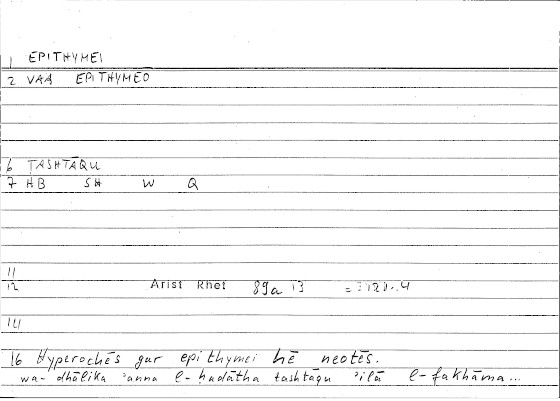 1 EPITHYMEI
2 VAA EPITHYMEO
6 TASHTĀQU
7 HB SH W Q
11
12 Arist Rhet 89a 13
14
16 Hyperochēs gar epithymei hē neotēs.
wa- dhālika ʾanna l-ḥadātha tashtāqu ʾilā l-fakhāma...